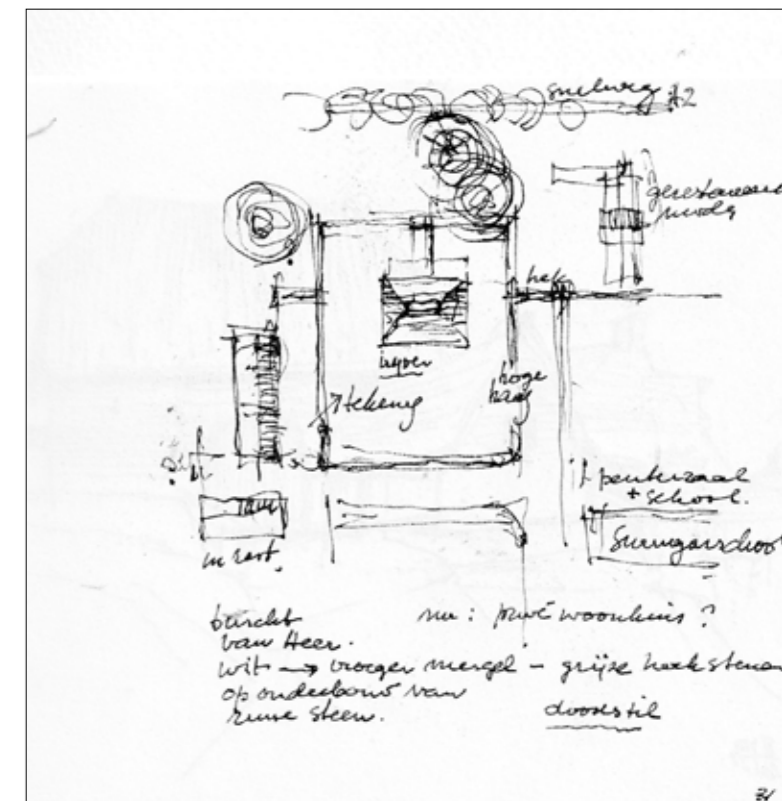 snelweg A2
gerestaureerd
hek
vijver
hoge
haag
tekening
tuin
in rest.
+ school.
burcht
van Heer.
nu: privé woonhuis?
wit → vroeger mergel – grijze hoekstenen
op onderbouw van
ruwe steen.
doodstil